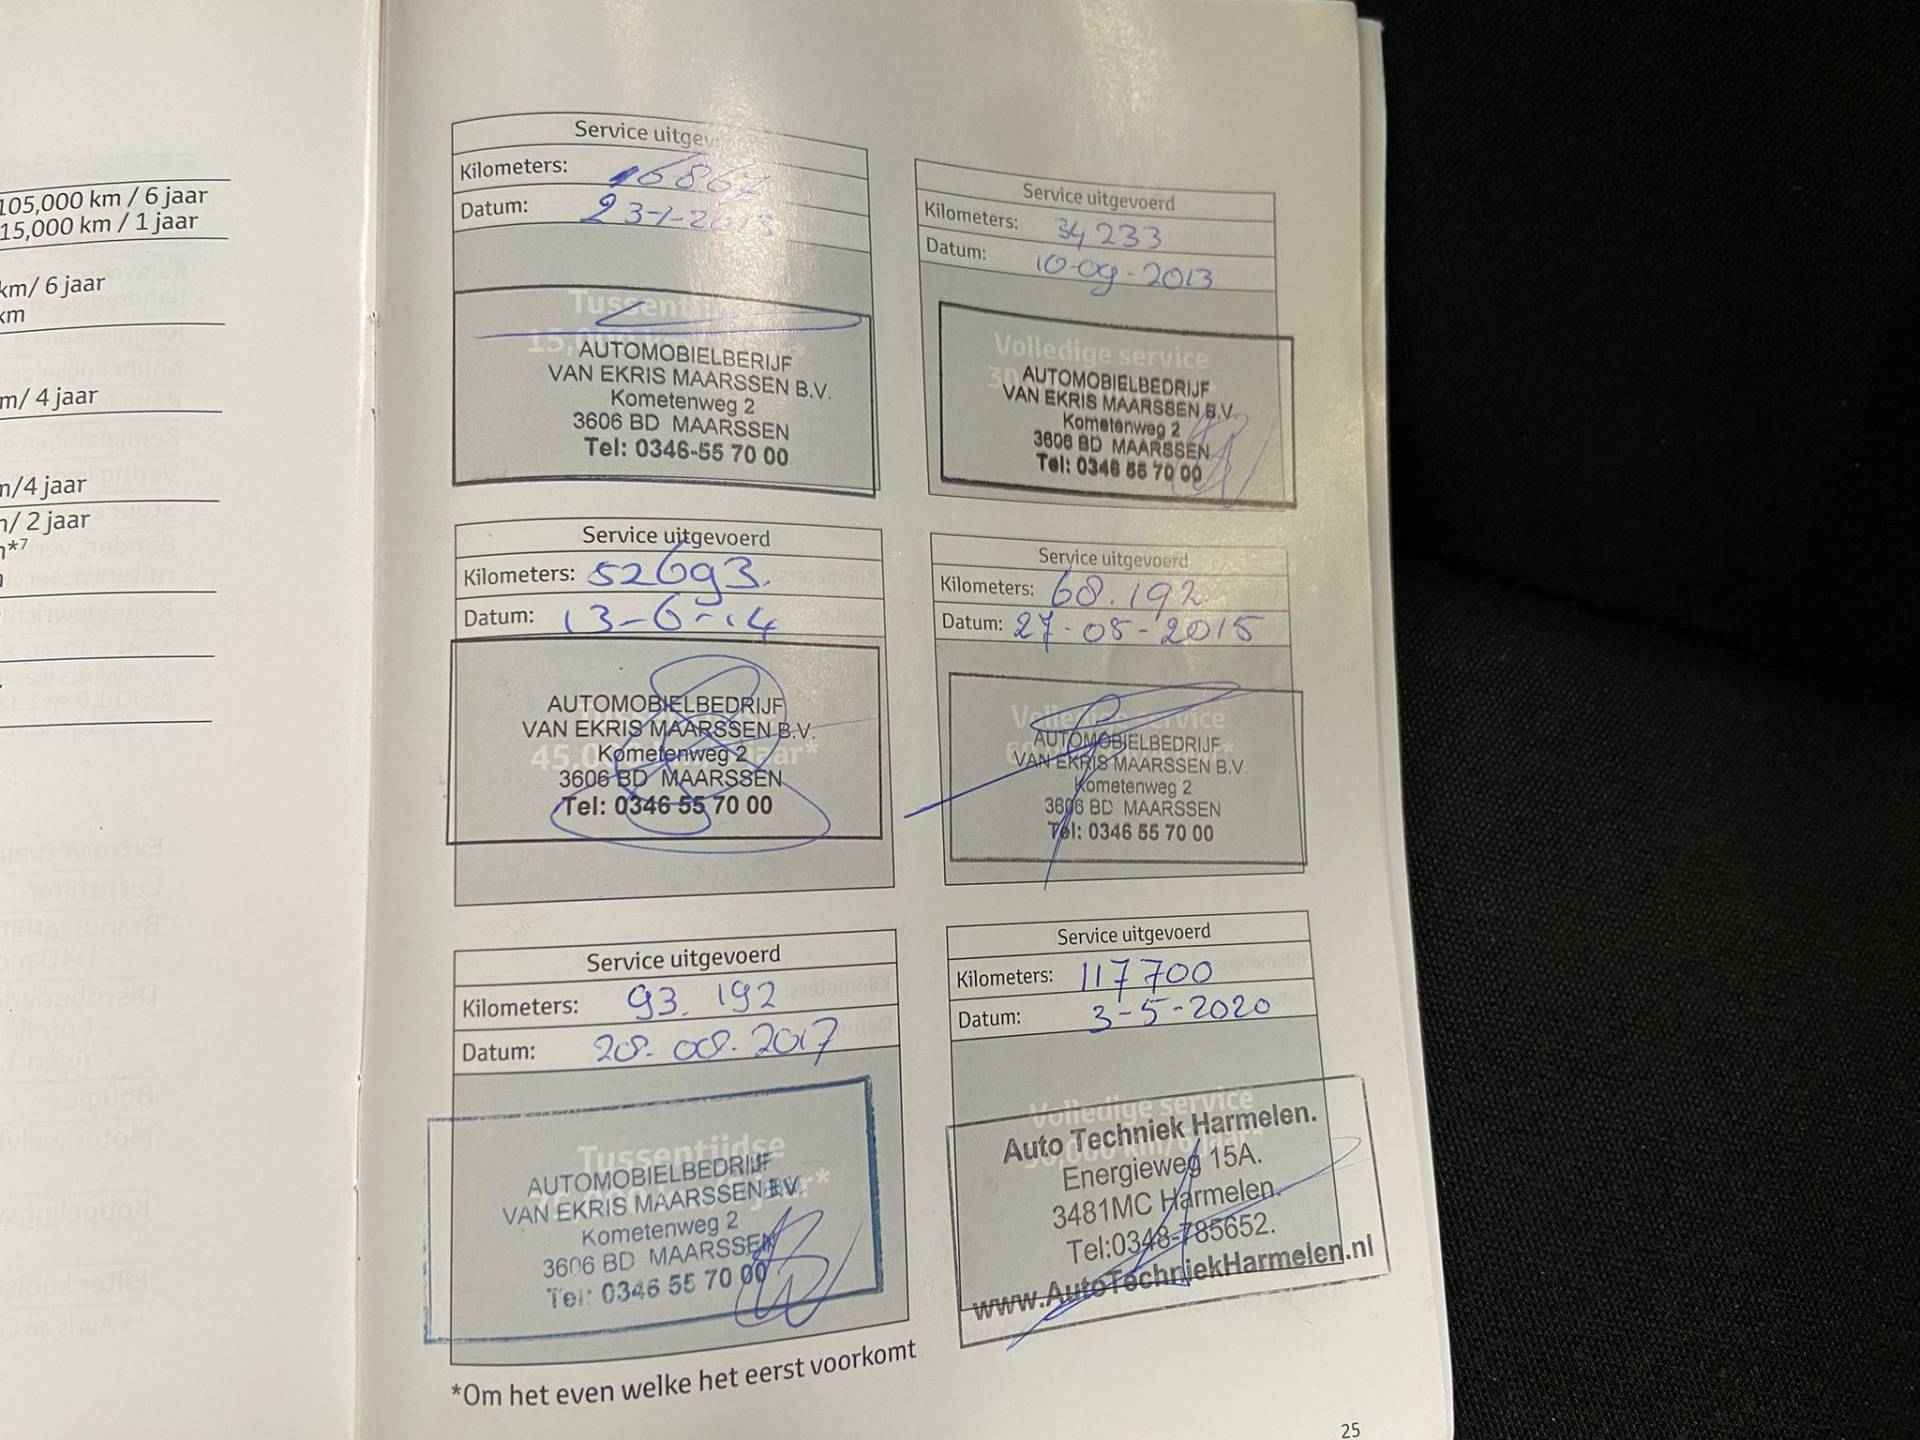 105,000 km / 6 jaar
15,000 km / 1 jaar
km/ 6 jaar
km
m/ 4 jaar
n/4 jaar
n/ 2 jaar
n*7
Service uitgev
Kilometers: 16867
Datum: 23-1-2013
Tussentij
15,0
AUTOMOBIELBERIJF
VAN EKRIS MAARSSEN B.V.
Kometenweg 2
3606 BD MAARSSEN
Tel: 0346-55 70 00
Service uitgevoerd
Kilometers: 34233
Datum: 10-09-2013
Volledige service
AUTOMOBIELBEDRIJF
VAN EKRIS MAARSSEN B.V.
Kometenweg 2
3606 BD MAARSSEN
Tel: 0346 55 70 00
Service uitgevoerd
Kilometers: 52693.
Datum: 13-6-14
45,0 jaar*
AUTOMOBIELBEDRIJF
VAN EKRIS MAARSSEN B.V.
Kometenweg 2
3606 BD MAARSSEN
Tel: 0346 55 70 00
Service uitgevoerd
Kilometers: 68.192
Datum: 27-05-2015
Volledige service
AUTOMOBIELBEDRIJF
VAN EKRIS MAARSSEN B.V.
Kometenweg 2
3606 BD MAARSSEN
Tel: 0346 55 70 00
Service uitgevoerd
Kilometers: 93.192
Datum: 28-08-2017
Tussentijdse
AUTOMOBIELBEDRIJF
VAN EKRIS MAARSSEN B.V.
Kometenweg 2
3606 BD MAARSSEN
Tel: 0346 55 70 00
Service uitgevoerd
Kilometers: 117700
Datum: 3-5-2020
Volledige service
Auto Techniek Harmelen.
Energieweg 15A.
3481MC Harmelen.
Tel:0348-785652.
www.AutoTechniekHarmelen.nl
*Om het even welke het eerst voorkomt
25